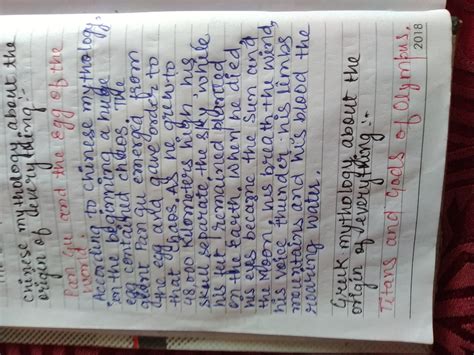 chinese mythology about the
origin of everything :-
Pan Gu and the egg of the
world.
According to chinese mythology,
in the beginning a huge
egg contained chaos. The
giant Pan Gu emerged from
the egg and gave order to
that chaos. As he grew to
48.000 kilometers high, his
skull separate the sky while
his feet remained planted
on the Earth when he died,
his eyes became the sun and
the moon, his breath the wind,
his voice thunder, his limbs
mountains and his blood the
roaring water.
Greek mythology about the
origin of everything :-
Titans and Gods of Olympus.
2018